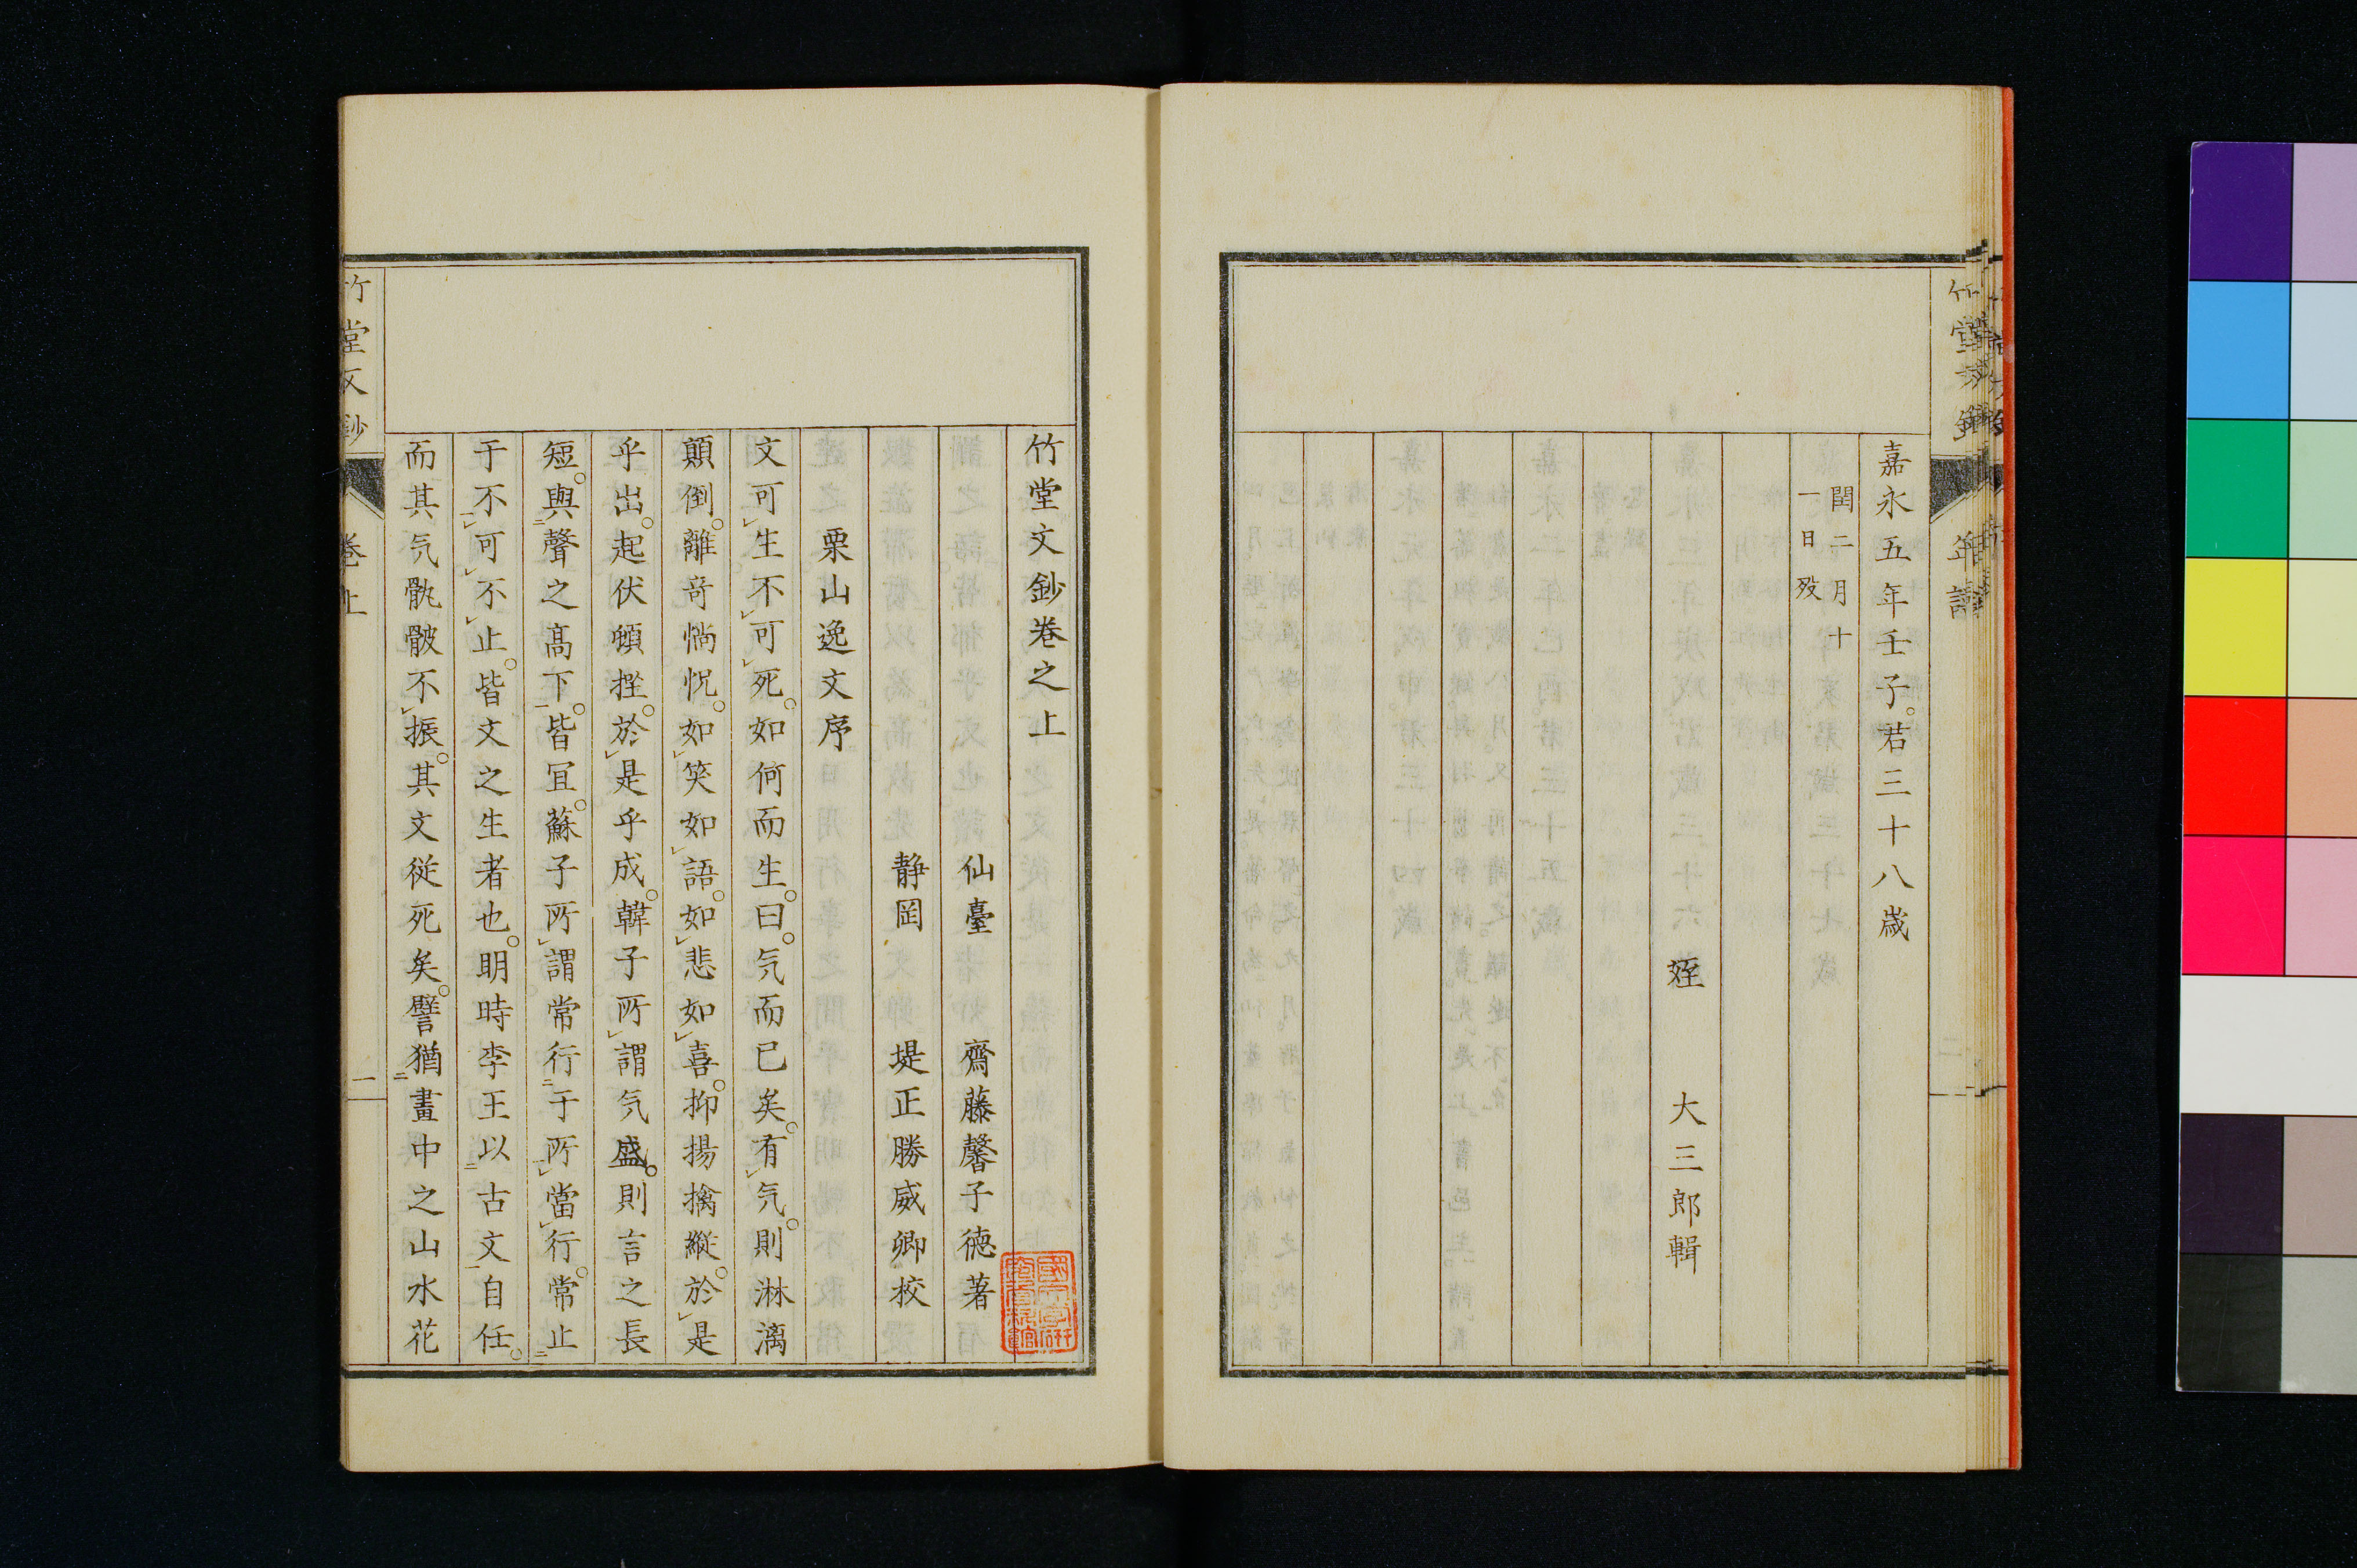 嘉永五年壬子。君三十八歳
閏二月十
一日歿
姪　大三郎輯
竹堂文鈔卷之上
仙臺　齋藤馨子德著
静岡　堤正勝威卿挍
栗山逸文序
文可レ生不レ可レ死。如何而生。曰。気而已矣。有レ気。則淋漓
顛倒。離奇惝怳。如レ笑如レ語。如レ悲如レ喜。抑揚擒縱。於レ是
乎出。起伏頓挫。於レ是乎成。韓子所レ謂気盛。則言之長
短。與二聲之高下一。皆宜。蘇子所レ謂常行二于所一レ當レ行。常止二
于不一レ可レ不レ止。皆文之生者也。明時李王以二古文一自任。
而其気骩骳不レ振。其文従死矣。譬猶二畫中之山水花
竹堂文鈔　卷上　一